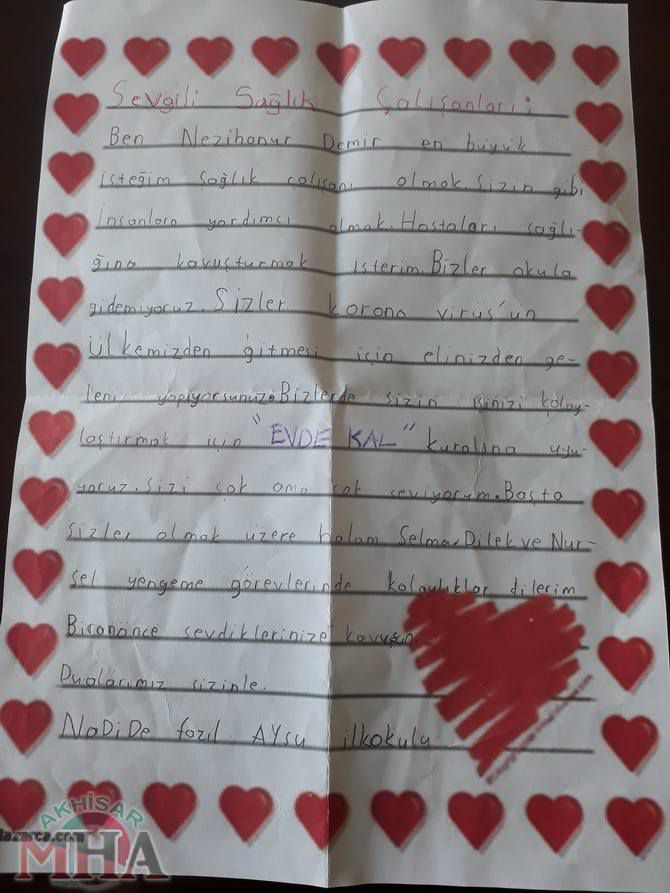 Sevgili Sağlık Çalışanları;
Ben Nezihanur Demir en büyük
isteğim Sağlık çalışanı olmak. Sizin gibi
İnsanlara yardımcı olmak. Hastaları sağlı-
ğına kavuşturmak isterim. Bizler okula
gidemiyoruz. Sizler korona virüs'ün
Ülkemizden gitmesi için elinizden ge-
leni yapıyorsunuz. Bizlerde sizin işinizi kolay-
laştırmak için "EVDE KAL" kuralına uyu-
yoruz. Sizi çok ama çok seviyorum. Başta
Sizler olmak üzere halam Selma, Dilek ve Nur-
sel yengeme görevlerinde kolaylıklar dilerim
Biranönce sevdiklerinize kavuşun
Dualarımız sizinle.
NaDiDe fazıl AYsu ilkokulu
AKHİSAR
MHA